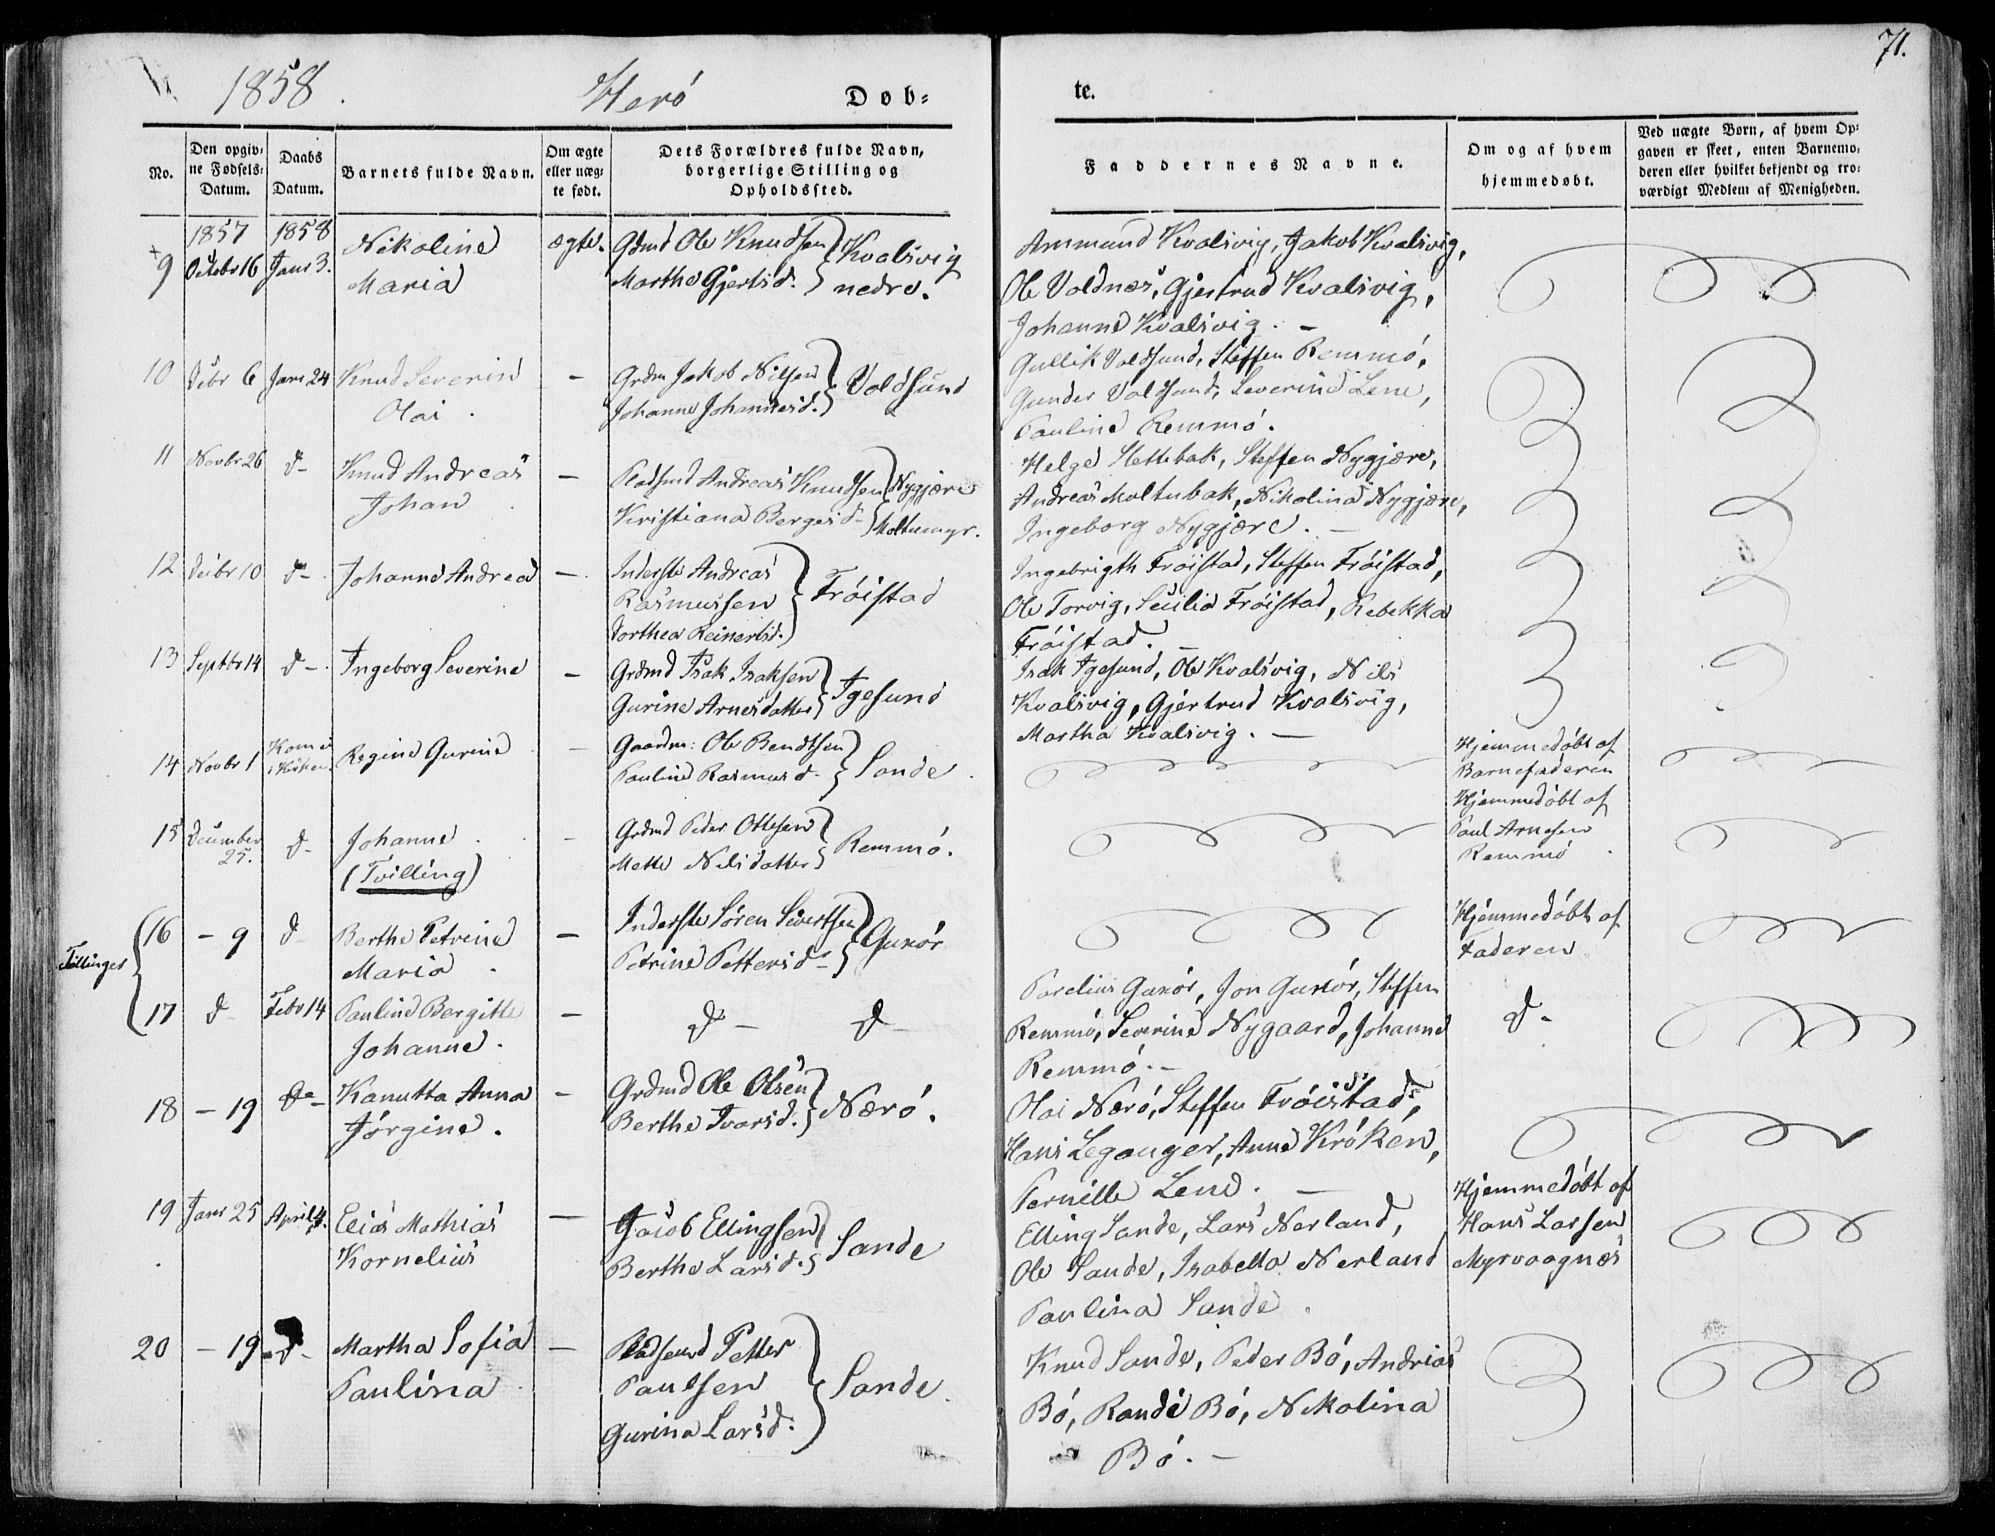 1858. Herö Døb=
te. 71.
No.
Den opgiv=
ne Fødsels=
Datum.
Daabs
Datum.
Barnets fulde Navn.
Om ægte
eller uæg=
te født.
Dets Forældres fulde Navn,
borgerlige Stilling og
Opholdssted.
Faddernes Navne.
Om og af hvem
hjemmedøbt.
Ved uægte Børn, af hvem Op=
gaven er skeet, enten Barnemo=
deren eller hvilket bekjendt og tro=
værdigt Medlem af Menigheden.
1857 1858
9 Octobr 16 Janr 3. Nikoline
Maria
ægte.
Grdmd Ole Knudsen
Marthe Gjertsd.
Kvalsvig
nedre.
Ammund Kvalsvig, Jakob Kvalsvig,
Ole Voldnes, Gjertrud Kvalsvig,
Johanne Kvalsvig. -
10 Debr 6 Janr 24 Knud Severin
Olai.
-
Grdm Jakob Nilsen
Johanne Johannesd.
Voldsund
Gullik Voldsund, Steffen Remmö,
Gunder Voldsund, Severine Lene,
Pauline Remmö.
11 Novbr 26 d- Knud Andreas
Johan
-
Pladsmd Andreas Knudsen
Kristiana Bergesd-
Nygjære
Moltumyr.
Helge Stettebak, Steffen Nygjære,
Andreas Moltubak, Nikolina Nygjære,
Ingeborg Nygjære. -
12 Decbr 10 d- Johanne Andrea
-
Inderste Andreas
Rasmussen
Dorthea Reinertsd.
Fröistad
Ingebrigth Fröistad, Steffen Fröistad,
Ole Torvig, Secilia Fröistad, Rebekka
Fröistad. -
13 Septbr 14 d- Ingeborg Severine
-
Grdmd Isak Isaksen
Gurine Arnesdatter
Igesund
Isak Igesund, Ole Kvalsvig, Nils
Kvalsvig, Gjertrud Kvalsvig,
Martha Kvalsvig. -
14 Novbr 1 Kom ei
i Kirken. Regine Gurine
-
Gaardm: Ole Bendtsen
Pauline Rasmusd-
Sande.
Hjemmedöbt af
Barnefaderen
15 December
25. d- Johanne
(Tvilling)
-
Grdmd Peder Ottesen
Mette Nilsdatter
Remmö.
Hjemmedöbt af
Paul Arnesen
Remmö.
Tvillinger
16 - 9 d- Berthe Petrine
Maria.
-
Inderste Sören Sivertsen
Petrine Pettersd-
Gurör
Hjemmedöbt af
Faderen
17 d- Febr 14 Pauline Bergitte
Johanne.
-
d- d-
Parelius Gurör, Jon Gurör, Steffen
Remmö, Severine Nygaard, Johanne
Remmö. -
d-
18 - 19 do- Kanutta Anna
Jörgine.
-
Grdmd Ole Olsen
Berthe Ivarsd.
Nærö.
Olai Nærö, Steffen Fröistad,
Hans Leganger, Anne Kröken,
Pernille Lene. -
19 Janr 25 April 4. Elias Mathias
Kornelius
-
Jacob Ellingsen
Berthe Larsd.
Sande
Elling Sande, Lars Nerland,
Ole Sande, Isabella Nerland
Paulina Sande.
Hjemmedöbt af
Hans Larsen
Myrvaagnes
20 - 19 - d- Martha Sofia
Paulina
-
Pladsmd Petter
Paulsen
Gurina Larsd.
Sande.
Knud Sande, Peder Bö, Andrias
Bö, Randi Bö, Nikolina
Bö. -